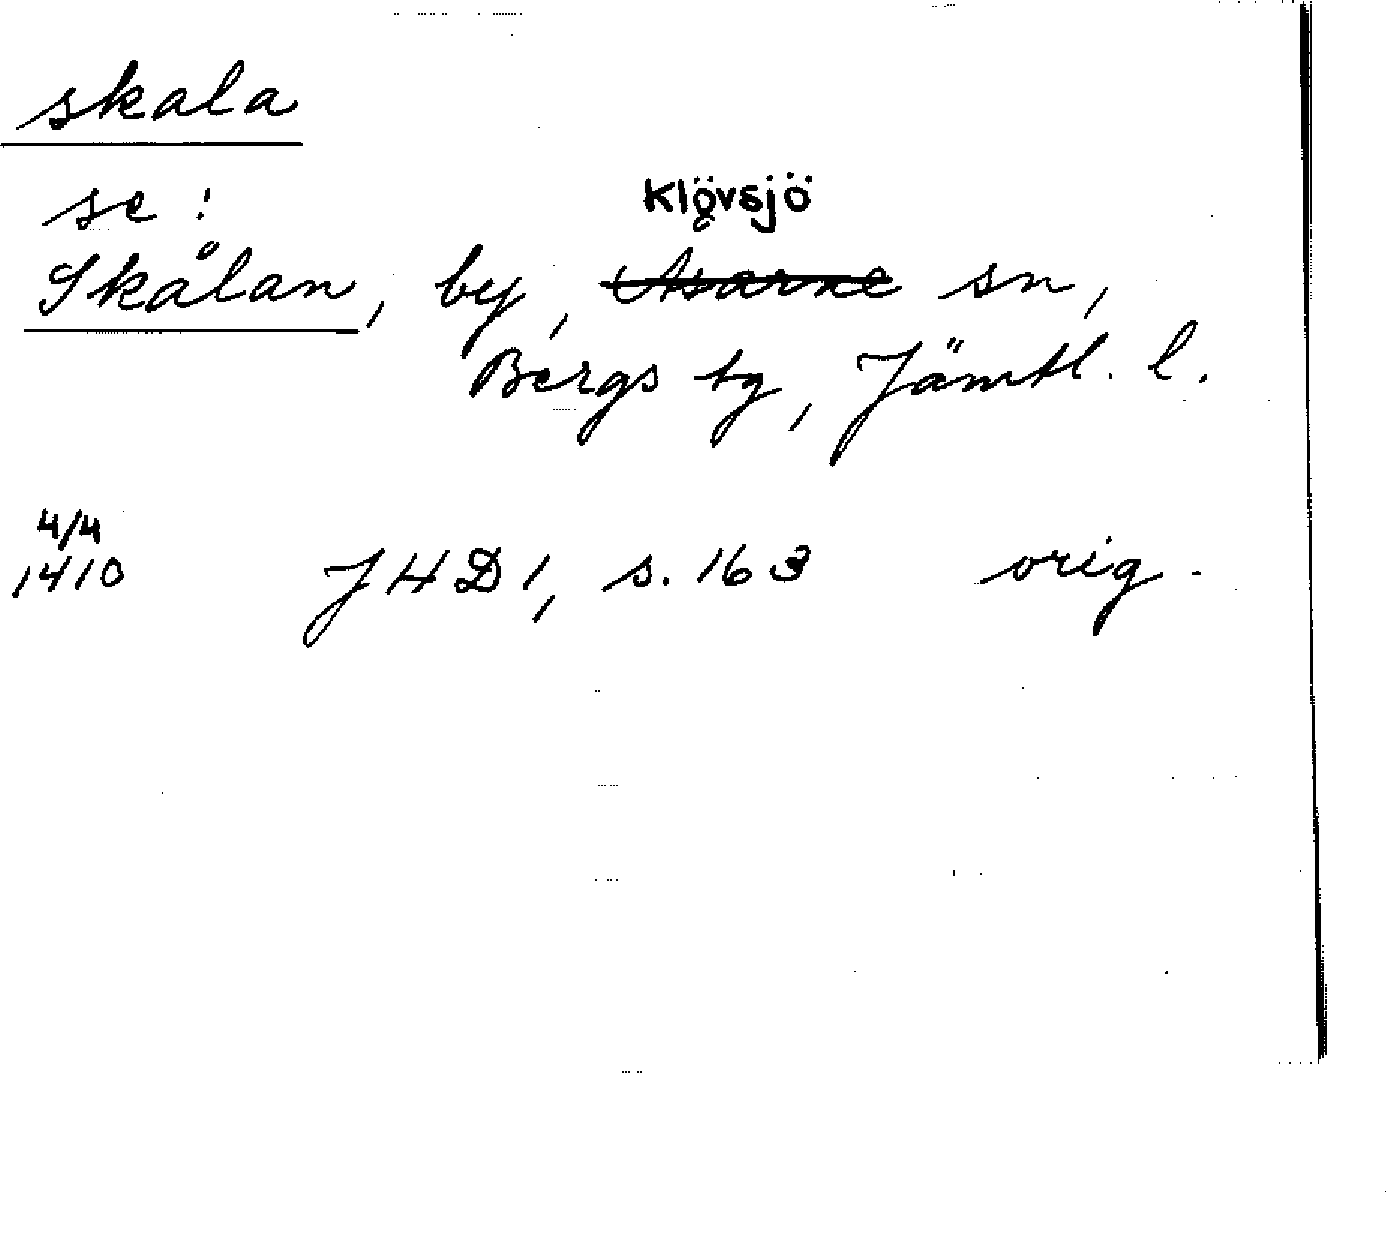 skala
se:
Klövsjö
Skålan, by, Åsarne sn,
Bergs tg, Jämtl. l.
4/4
1410 JHD 1, s. 163 orig.